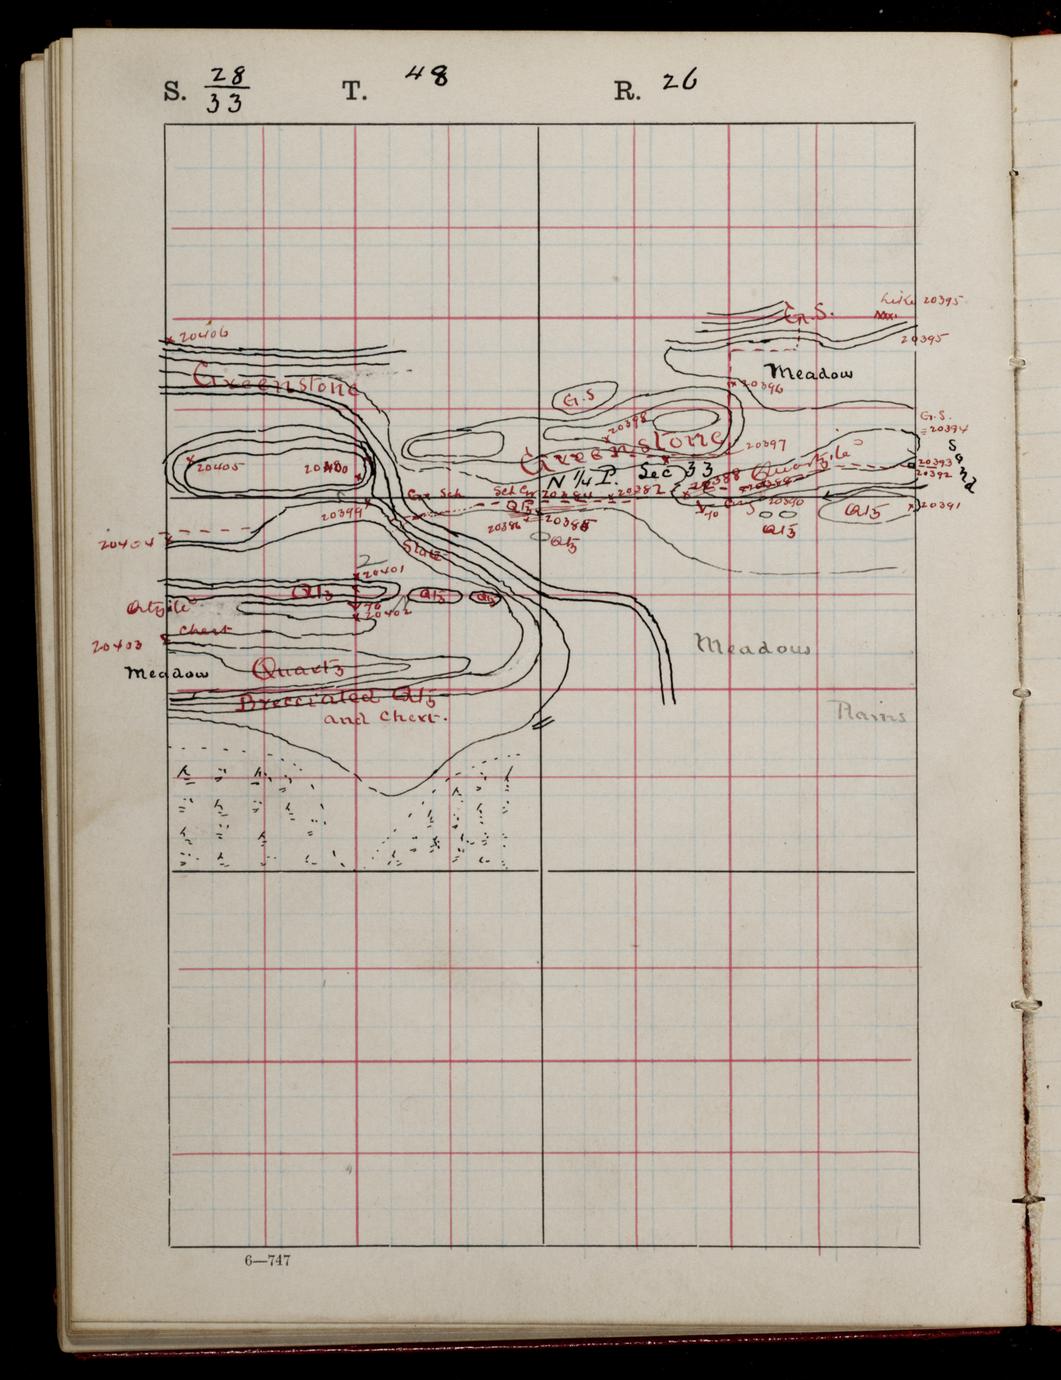 S. 28/33 T. 48 R. 26
Like 20395
G.S.
20395
20406
Meadow
Greenstone
20396
G.S
G.S.
20394
20398
Greenstone
20397
Sand
20405
20400
N 1/4 P. Sec 33
20388
Quartzite
20393
20392
Grn Sch
Sch Grn
20387
20389
20390
20391
Qtz
20399
20386
20385
Qtz
Qtz
Qtz
20404
Slate
20401
Qtz
Qtz
Qtz
Qtzite
20402
Chert
20403
Meadow
Meadow
Quartz
Brecciated Qtz
and Chert.
Plains
6—747